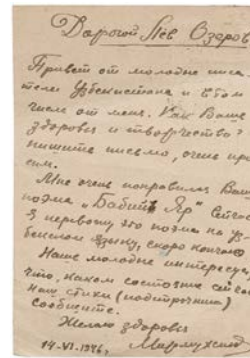 Дорогой Лев Озеров
Привет от молодых писа
тели Узбекистана и в том
числе от меня. Как Ваше
здоровья и творчество?
пишите письмо, очень про
сим.
Мне очень понравилась Ваш
поэма „Бабий Яр" Сейчас
я первожу это поэма на уз-
бекском языку, скоро кончаю
Наше молодые интересуе
что, каком состояние сейчас
наш стихи (подстрочник)
сообщите.
Желаю здоровья
14-VI-1946г. Мирмухсин